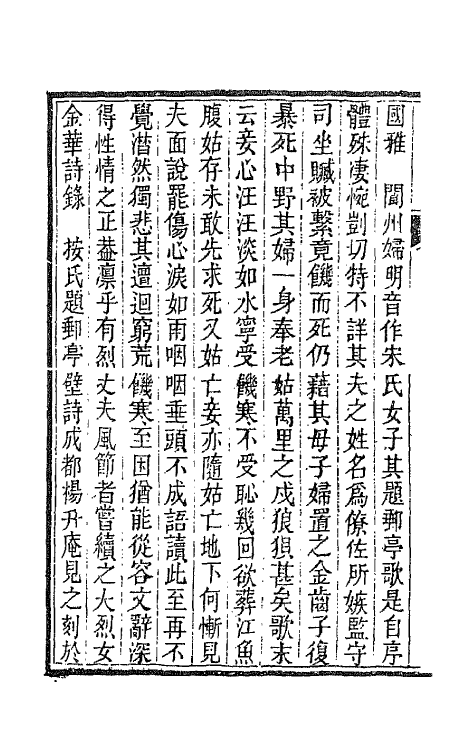 國雅　閬州婦明音作宋氏女子其題郵亭歌是自序
體殊凄惋剴切特不詳其夫之姓名爲僚佐所嫉監守
司坐贓被繫竟饑而死仍藉其母子婦置之金齒子復
暴死中野其婦一身奉老姑萬里之戍狼狽甚矣歌末
云妾心汪汪淡如水寧受饑寒不受恥幾回欲葬江魚
腹姑存未敢先求死又姑亡妾亦隨姑亡地下何慚見
夫面說罷傷心淚如雨咽咽垂頭不成語讀此至再不
覺潸然獨悲其邅迴窮荒饑寒至困猶能從容文辭深
得性情之正葢凛乎有烈丈夫風節者嘗續之大烈女
金華詩錄　按氏題郵亭壁詩成都楊升庵見之刻於